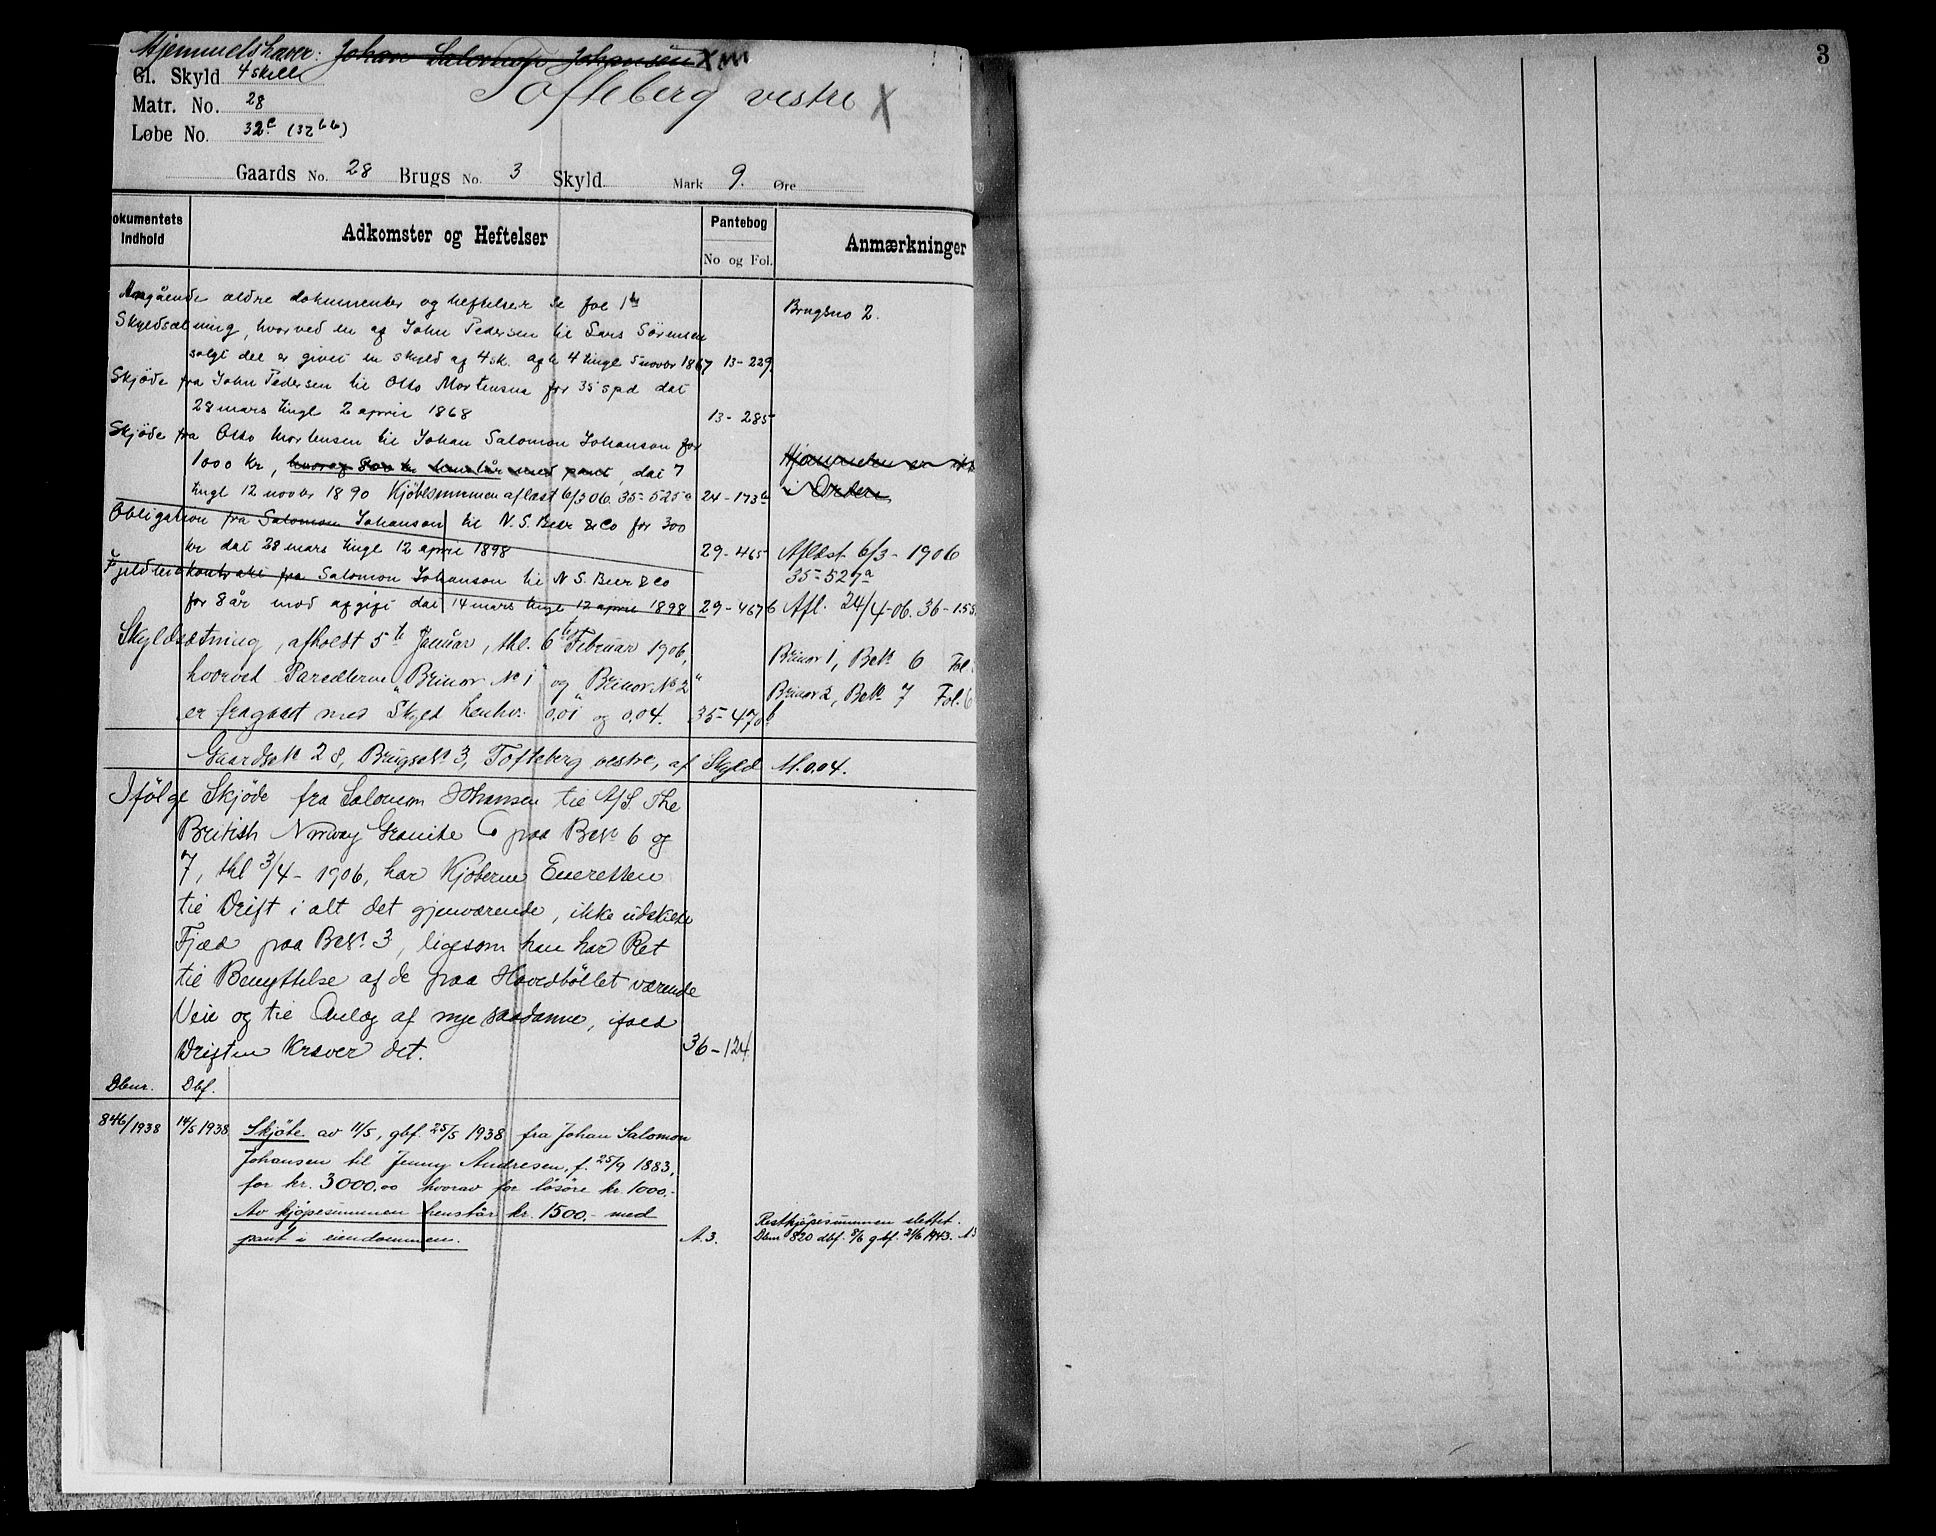 Hjemmelshaver: Johan Salomon Johansen X
Gl. Skyld 4 skill
Tofteberg vestre X
Matr. No. 28
Løbe No. 32c (32bb)
Gaards No. 28 Brugs No. 3 Skyld Mark 9. Øre
3
Dokumentets Indhold
Adkomster og Heftelser
Pantebog
No og Fol.
Anmærkninger
Angående ældre dokumenter og heftelser se fol 1b Brugsno 2.
Skyldsætning, hvorved en af John Pedersen til Lars Sørensen
solgt del er givet en skyld af 4 sk. afh 4 tingl 5 novbr 1867 13-229.
Skjøde fra John Pedersen til Otto Mortensen for 35 spd dat
28 mars tingl 2 april 1868 13-285
Skjøde fra Otto Mortensen til Johan Salomon Johanson for
1000 kr, hvoraf 800 kr henstår med pant, dat 7 Hjemmelen er ikke
tingl 12 novbr 1890 Kjöbesummen aflæst 6/3 06. 35-525a 24-173b i Orden
Obligation fra Salomon Johanson til N. S. Beer & Co for 300
kr dat 28 mars tingl 12 april 1898 29-465 Aflæst 6/3-1906
35-527a
Fjeldleiekontrakt fra Salomon Johanson til N S. Beer & Co
for 8 år mod afgift dat 14 mars tingl 12 april 1898 29-467b Afl. 24/4-06. 36-158
Skyldsætning, afholdt 5te Januar, thl. 6te Februar 1906, Brinor 1, Bno 6 Fol.
hvorved Parcellerne "Brinor No 1" og "Brinor No 2" Brinor 2, Bno 7 Fol. 6
er fragaaet med Skyld henhv. 0,01 og 0,04. 35-470b
Gaardsno 28, Brugsno 3, Tofteberg vestre, af Skyld M. 0.04.
Ifölge Skjöde fra Salomon Johansen til A/S The
British Norway Granite Co paa Bno 6 og
7, thl 3/4-1906, har Kjöberne Eneretten
til Drift i alt det gjenværende, ikke udskilte
Fjæld paa Bno 3, ligesom han har Ret
til Benyttelse af de paa Hovedböllet værende
Veie og til Anlæg af nye saadanne, ifald
Driften kræver det. 36-124
Dbnr. Dbf.
846/1938 14/5 1938 Skjöte av 11/5, gbf. 25/5 1938 fra Johan Salomon
Johansen til Jenny Andresen, f. 25/9 1883,
for kr. 3000,00 hvorav for lösöre kr. 1000.-
Av kjöpesummen henstår kr. 1500,- med Restkjöpesummen slettet.
pant i eiendommen. A. 3. Dbnr 820 dbf. 9/6 gbf. 21/6 1943. A5